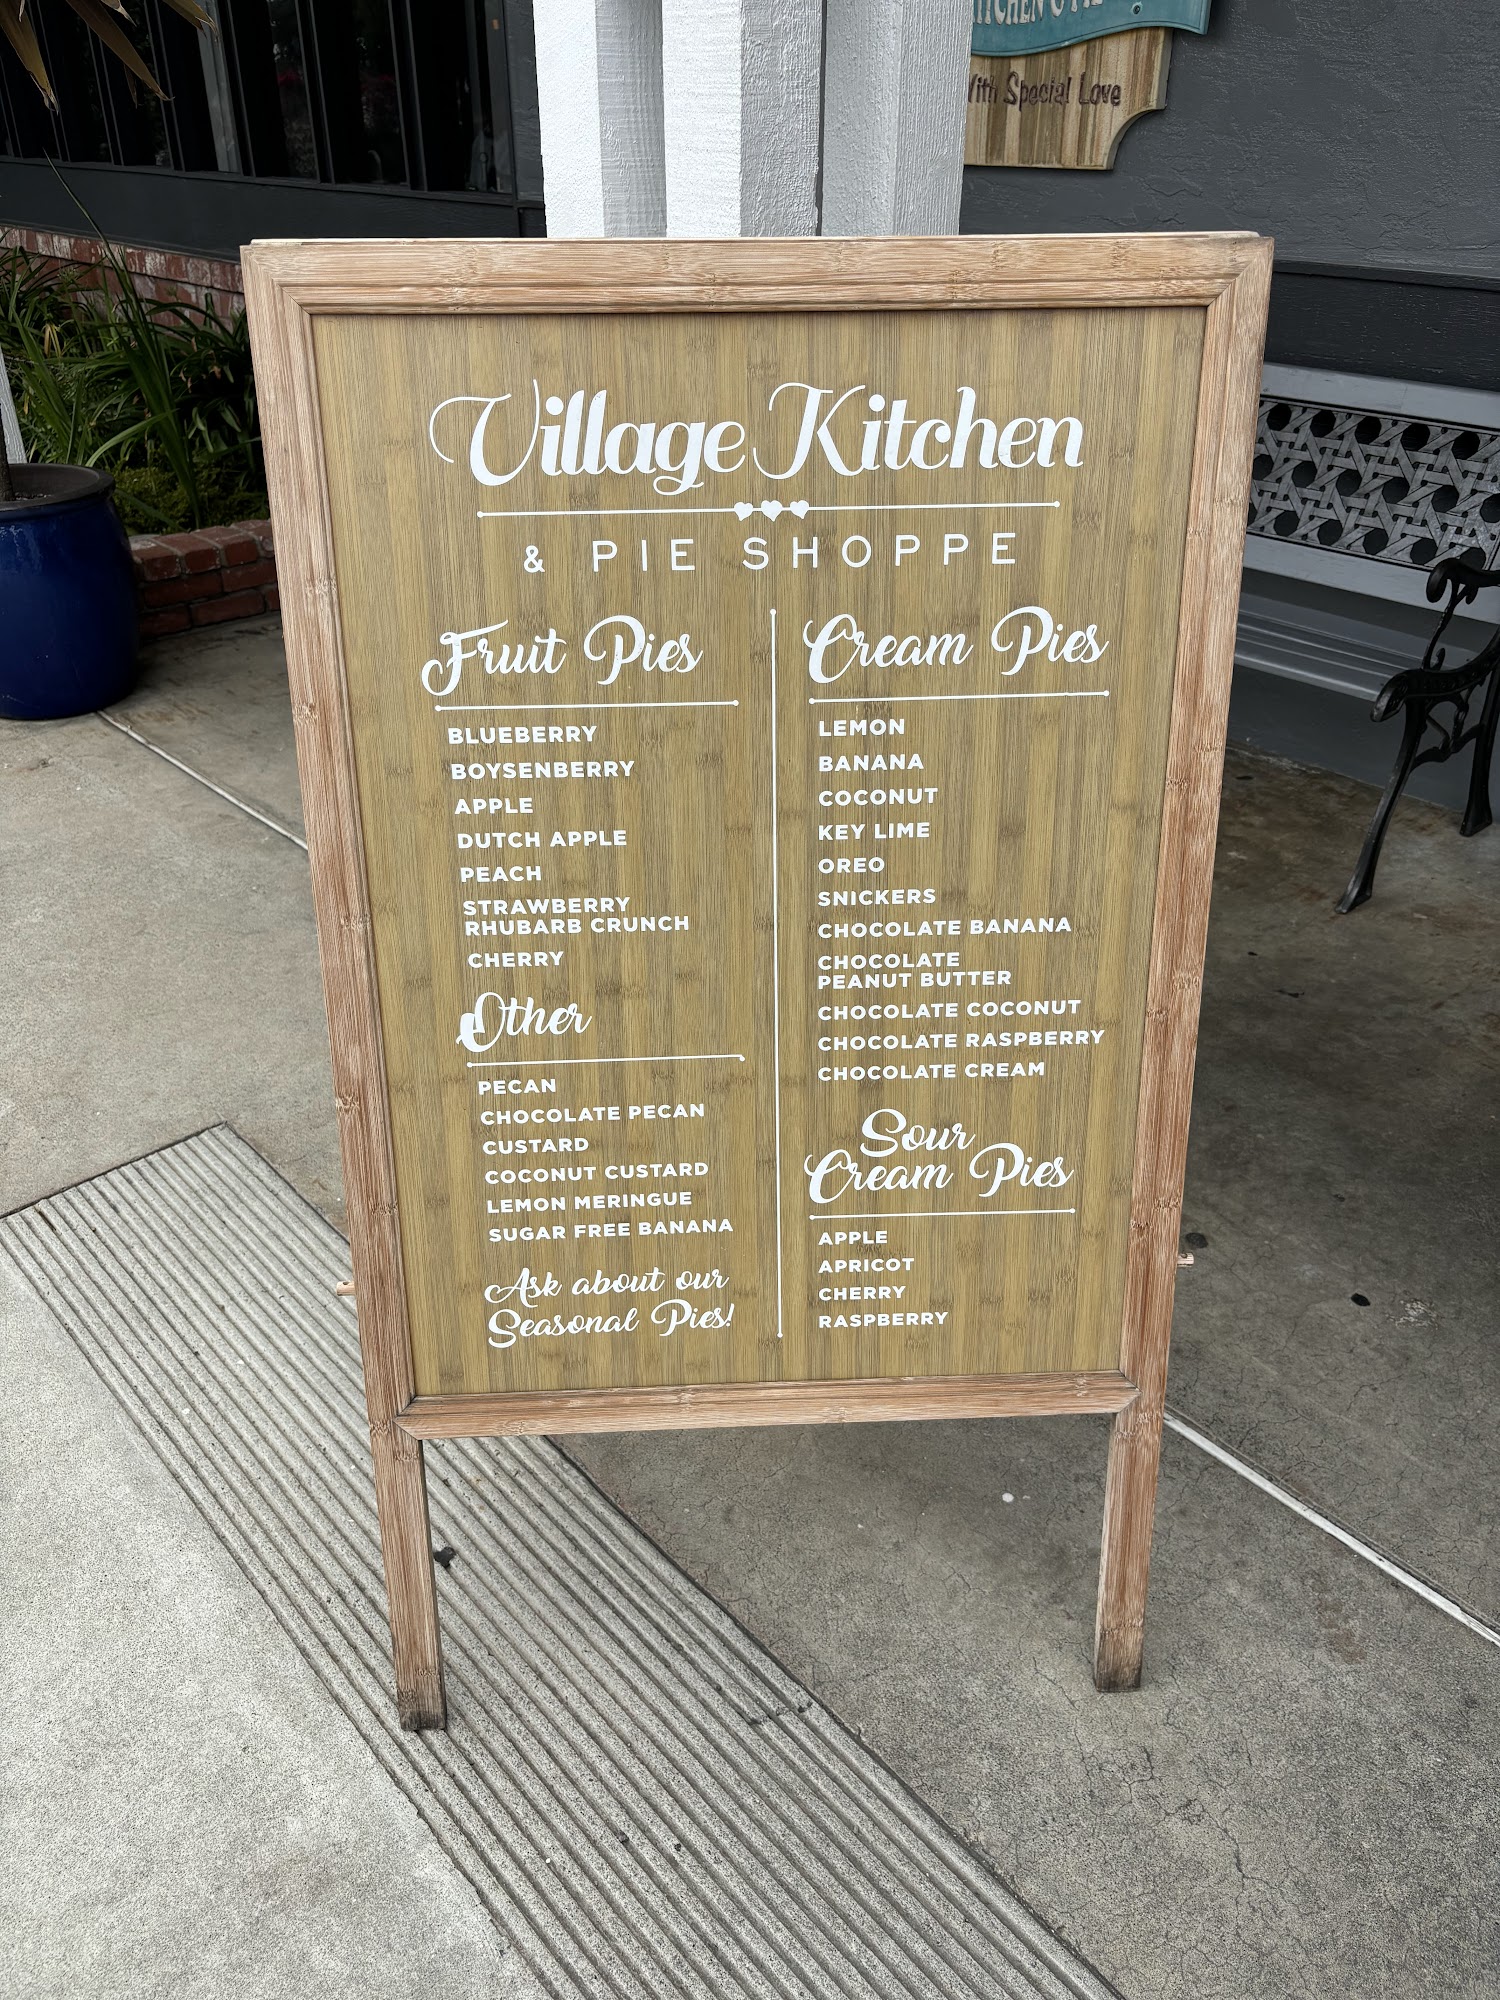 With Special Love
Village Kitchen
& PIE SHOPPE
Fruit Pies
BLUEBERRY
BOYSENBERRY
APPLE
DUTCH APPLE
PEACH
STRAWBERRY
RHUBARB CRUNCH
CHERRY
Other
PECAN
CHOCOLATE PECAN
CUSTARD
COCONUT CUSTARD
LEMON MERINGUE
SUGAR FREE BANANA
Ask about our
Seasonal Pies!
Cream Pies
LEMON
BANANA
COCONUT
KEY LIME
OREO
SNICKERS
CHOCOLATE BANANA
CHOCOLATE
PEANUT BUTTER
CHOCOLATE COCONUT
CHOCOLATE RASPBERRY
CHOCOLATE CREAM
Sour
Cream Pies
APPLE
APRICOT
CHERRY
RASPBERRY